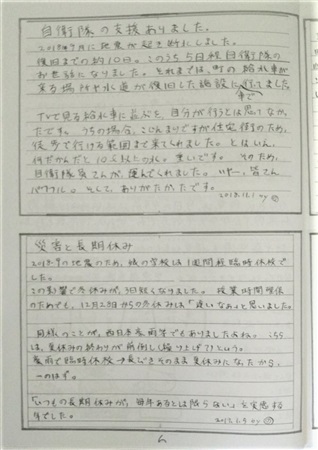 自衛隊の支援ありました。
2018年9月に地震が起き断水しました。
復旧までの約10日。このうち5日程自衛隊の
お世話になりました。それまでは、町の給水車が
来る場所や水道が復旧した施設に行ってました。
車で
TVで見る給水車に並ぶを、自分が行うとは思ってなか
たです。うちの場合、こじんまりですが住宅街のため、
徒歩で行ける範囲まで来てくれました。とはいえ、
何だかんだと10L以上の水。重いです。そのため、
自衛隊員さんが、運んでくれました。いやー、皆さん
パワフル。そして、ありがたかったです。
2018.12.1
災害と長期休み
2018年の地震のため、娘の学校は1週間程臨時休校で
した。
この影響で冬休みが、3日短くなりました。授業時間確保
のためでも、12月28からの冬休みは「遅いなぁ」と思いました。
同様のことが、西日本豪雨等でもありましたよね。こちら
は、夏休みの終わりが前倒し(繰り上げ?)という。
豪雨で臨時休校→長びきそのまま夏休みになったから、
ーのはず。
「いつもの長期休みが、毎年あるとは限らない」を実感する
年でした。
6